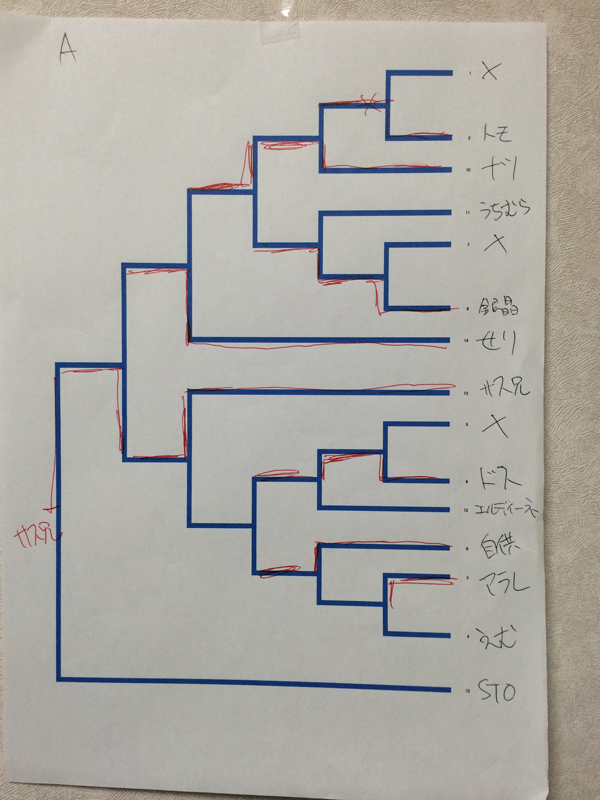 A
1 X
2 トモ
10 ナリ
11 うちむら
7 X
8 銀晶
14 せリ
13 サス兄
5 X
6 ドス
12 エルディーネ
9 自供
3 マラし
4 えむ
サス兄
15 STO